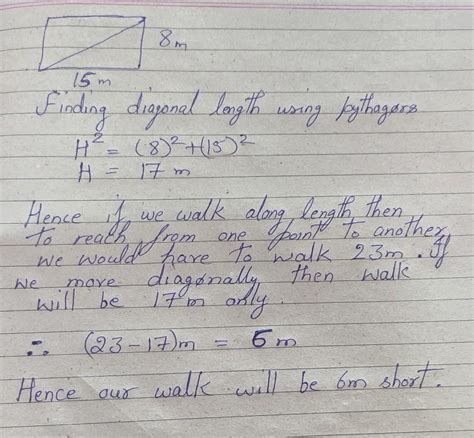 8m
15m
Finding diagonal length using pythagors
H² = (8)²+(15)²
H = 17 m
Hence if we walk along length then
to reach from one point to another,
we would have to walk 23m. If
we move diagonally then walk
will be 17m only.
∴ (23-17)m = 6m
Hence our walk will be 6m short.